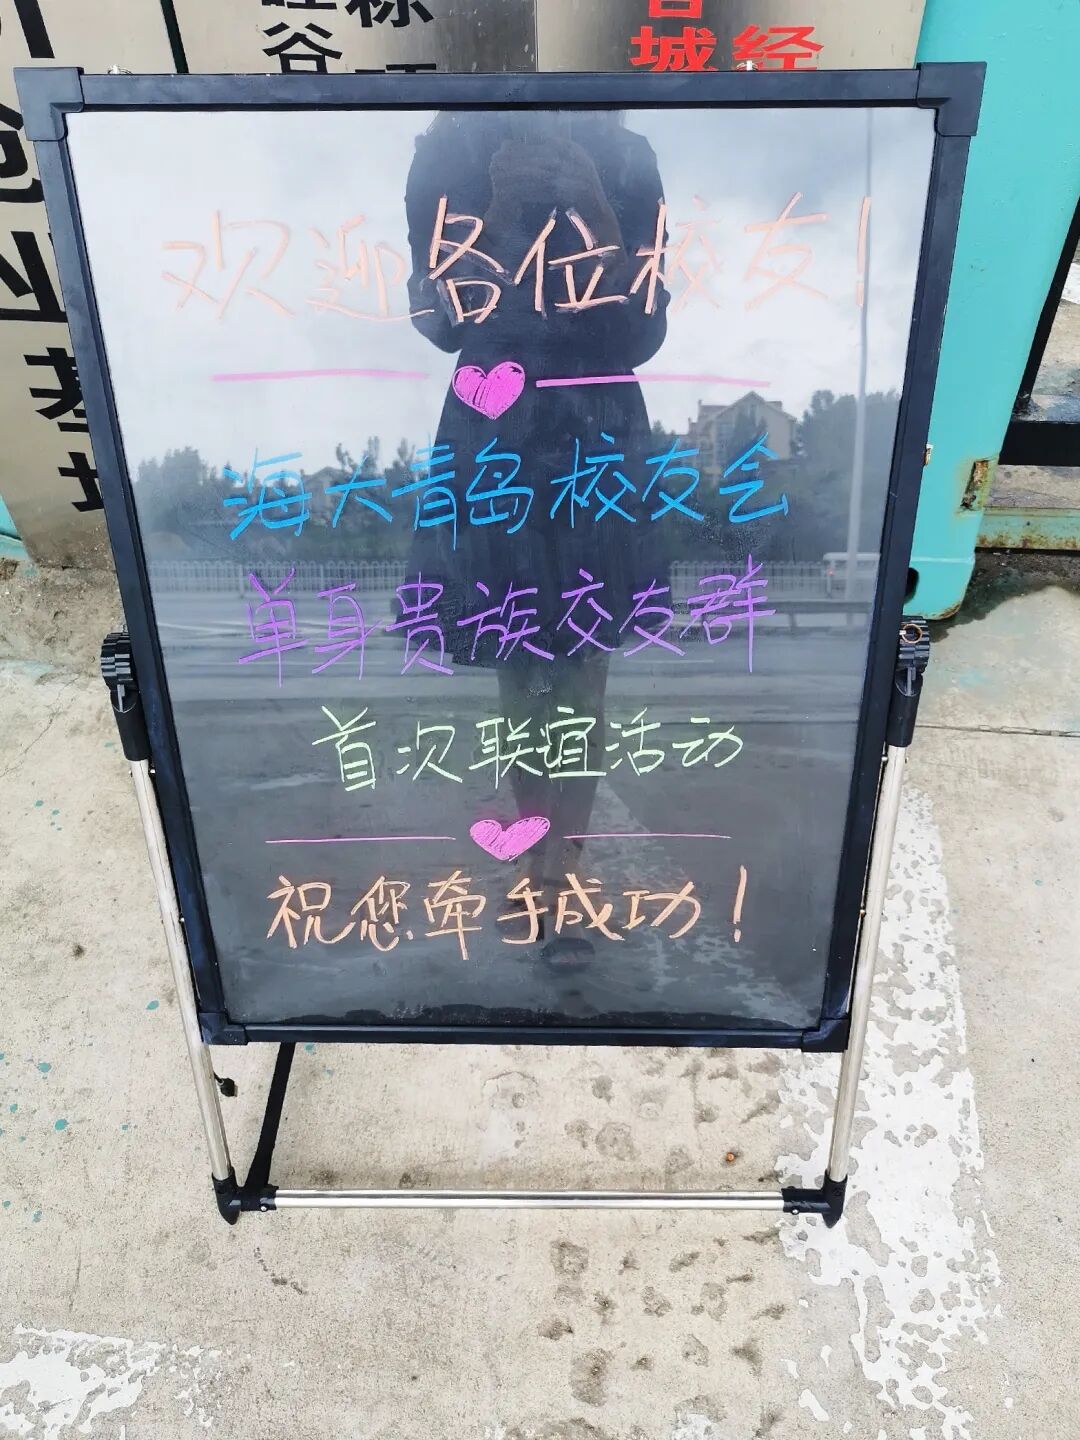 硅
谷
城 经
创
业
基
欢迎各位校友！
海大青岛校友会
单身贵族交友群
首次联谊活动
祝您牵手成功！